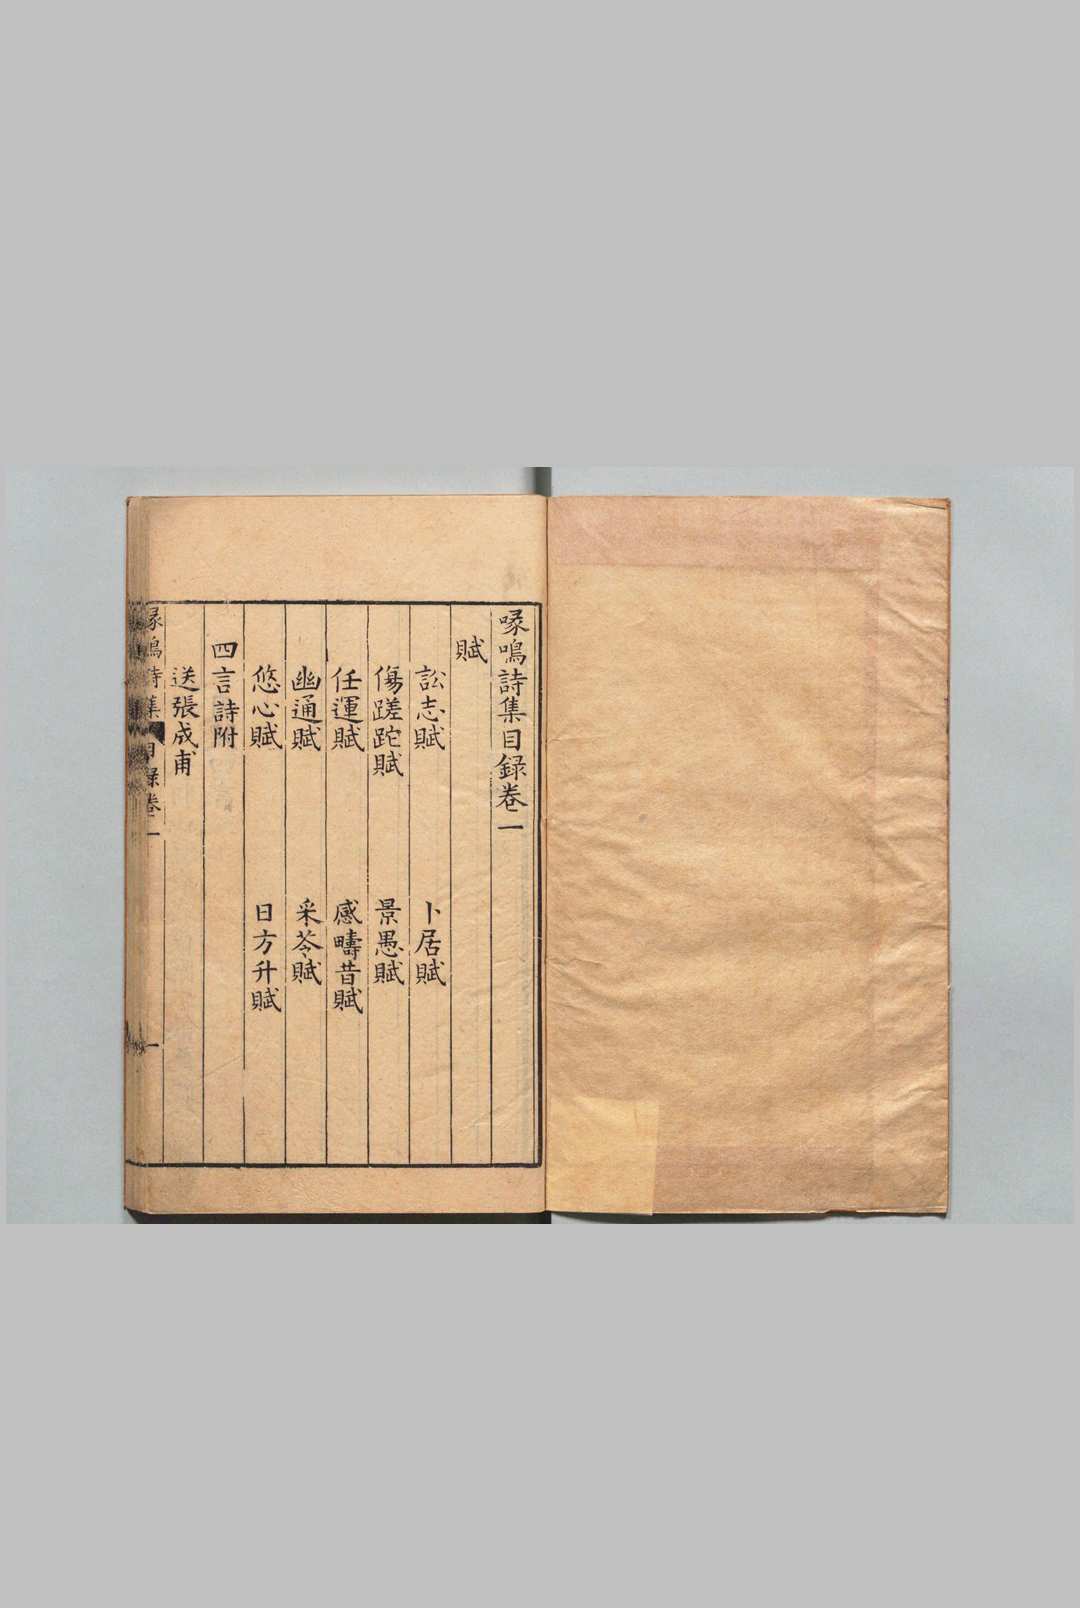 喙鳴詩集目録卷一
賦
訟志賦　卜居賦
傷蹉跎賦　景愚賦
任運賦　感疇昔賦
幽通賦　采苓賦
悠心賦　日方升賦
四言詩附
送張成甫
喙鳴詩集　目録卷一　一